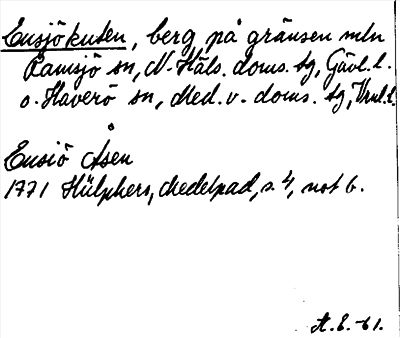 Ensjökuten, berg på gränsen mln
Ramsjö sn, N. Häls. doms. tg, Gävl. l.
o. Haverö sn, Med. v. doms. tg, Vnl. l.
Ensiö Åsen
1771 Hülphers, Medelpad, s. 4, not 6.
A. E. -61.